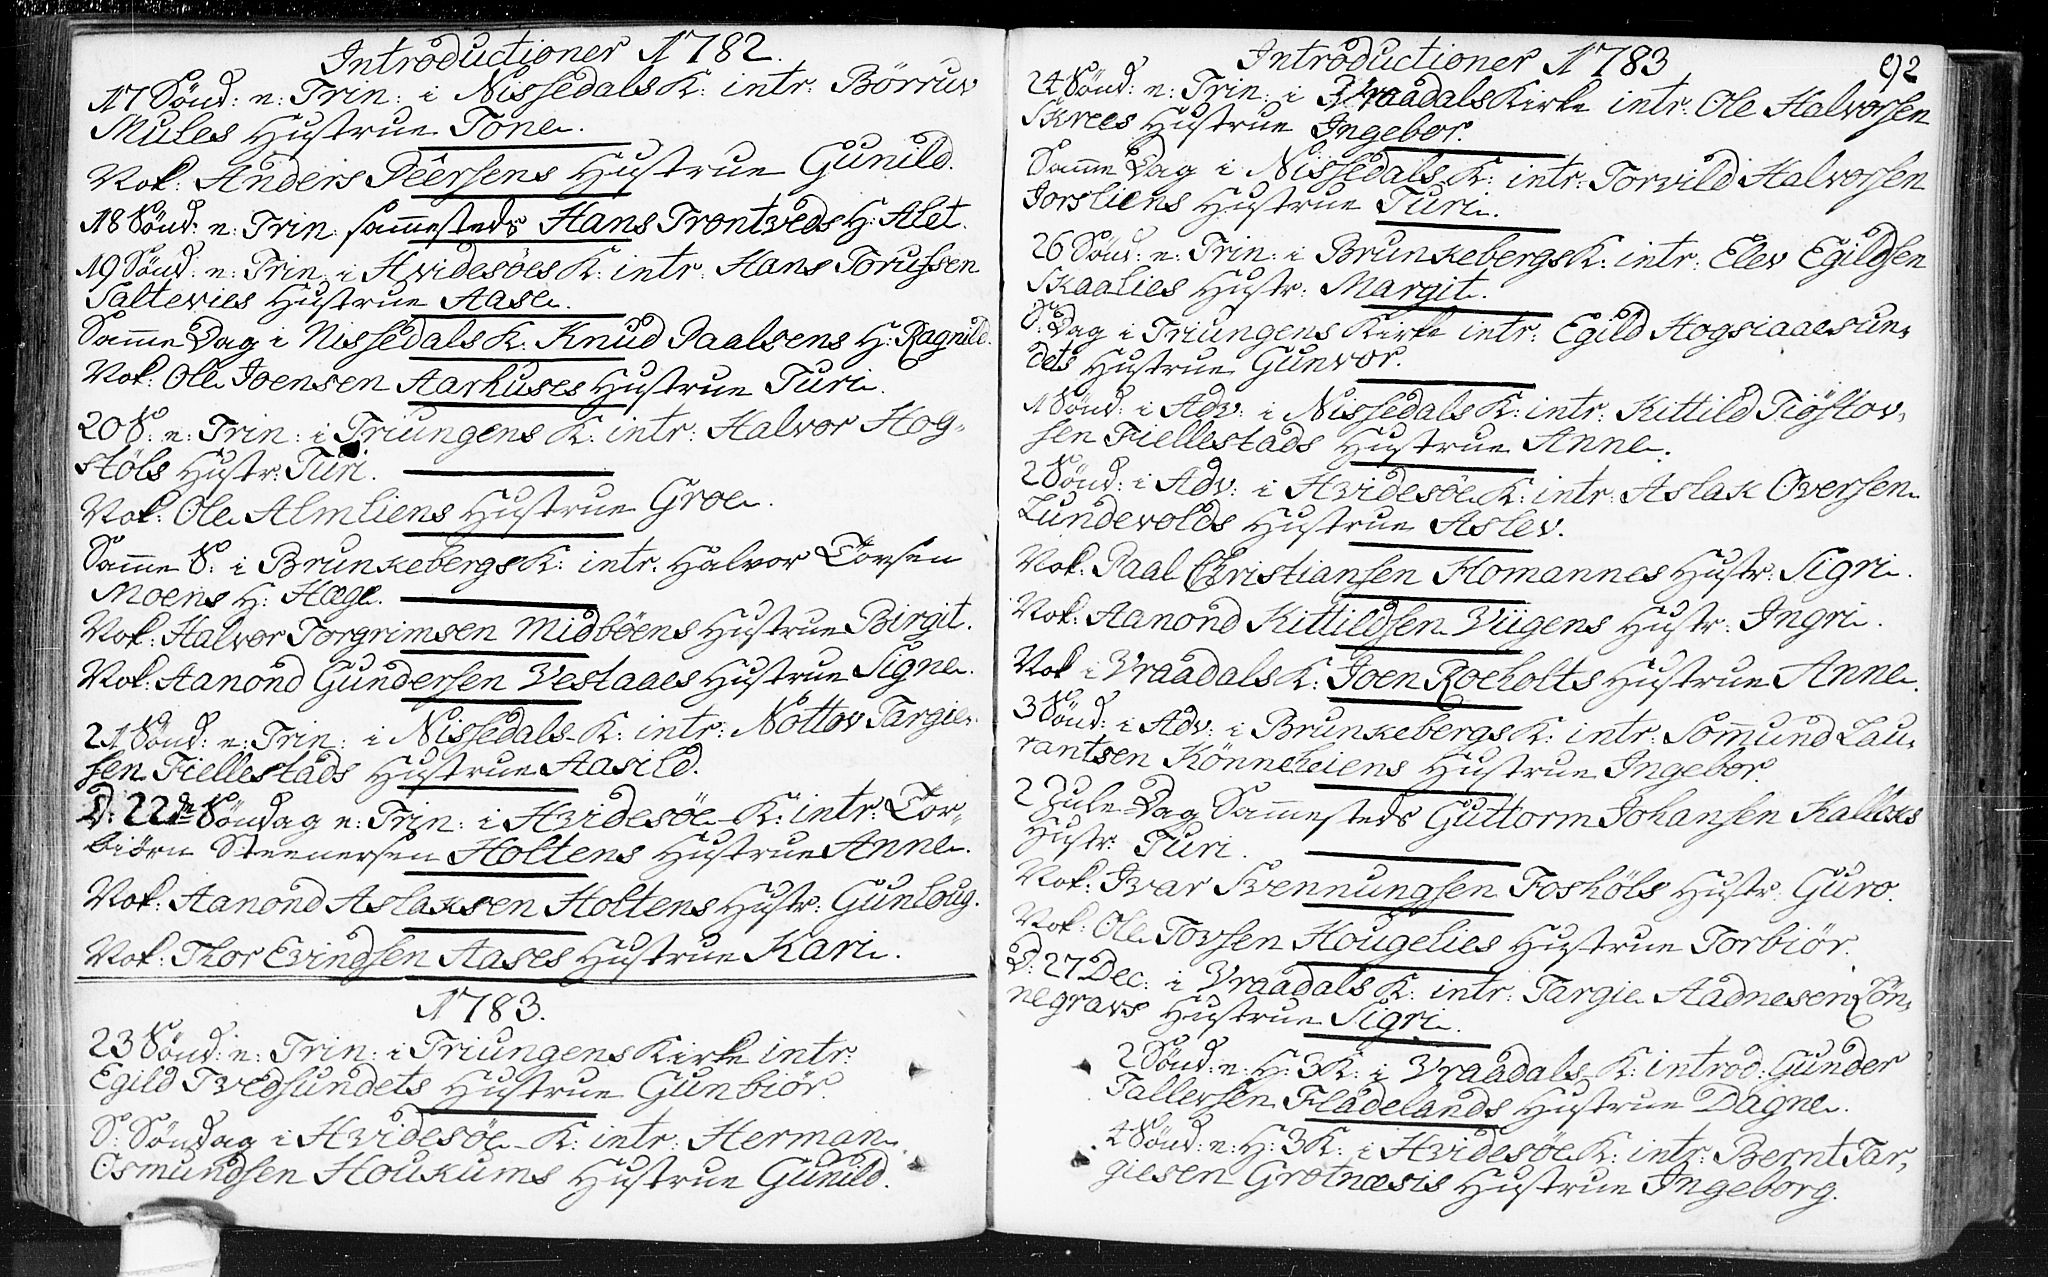 Introductioner 1782.
17 Sönd: e: Trin: i Nissedals K: intr: Börruv
Mules Hustrue Tone.
Nok: Anders Péersens Hustrue Gunild.
18 Sönd: e: Trin: sam̄esteds Hans Trontveds H: Alet.
19 Sönd: e: Trin: i Hvidesöes K: intr: Hans Torufsen
Saltevies Hustrue Aase.
Sam̄e Dag i Nissedals K: Knud Paalsens H: Ragnild.
Nok: Ole Joensen Aarhuses Hustrue Turi.
20 S: e: Trin: i Triungens K: intr: Halvor Hog-
stöls Hustr: Turi.
Nok: Ole Almliens Hustrue Groe.
Sam̄e S: i Brunkebergs K: intr: Halvor Tovsen
Moens H: Hæge.
Nok: Halvor Torgrimsen Midböens Hustrue Birgit.
Nok: Aanond Gundersen Vestaaes Hustrue Signe.
21 Sönd: e: Trin: i Nissedals K: intr: Nottov Targie-
sen Fiellestads Hustrue Aasild.
D: 22de Söndag e: Trin: i Hvidesöe K: intr: Tor-
biörn Steenersen Holtens Hustrue Anne.
Nok: Aanond Aslaksen Holtens Hustr: Gunloug.
Nok: Thor Evindsen Aases Hustrue Kari.
1783.
23 Sönd: e: Trin: i Triungens Kirke intr:
Egild Tvedsundets Hustrue Gunbiör.
S: Söndag i Hvidesöe K: intr: Herman
Osmundsen Houkums Hustrue Gunild.
Introductioner 1783
92
24 Sönd: e: Trin: i Vraadals Kirke intr: Ole Halvorsen
Skrees Hustrue Ingebor.
Sam̄e Dag i Nissedals K: intr: Torvild Halvorsen
Jorsliens Hustrue Turi.
26 Sönd: e: Trin: i Brunkebergs K: intr: Elev Egildsen
Skaalies Hustr: Margit.
S: Dag i Triungens Kirke intr: Egild Hogsiaaesun-
dets Hustrue Gunvor.
1 Sönd: i Adv: i Nissedals K: intr: Kittild Tiöstov-
sen Fiellestads Hustrue Anne.
2 Sönd: i Adv: i Hvidesöe K: intr: Aslak Oversen
Lundevolds Hustrue Aslev.
Nok: Paal Christiansen Homannes Hustr: Sigri.
Nok: Aanond Kittildsen Viigens Hustr: Ingri.
Nok i Vraadals K: Joen Roeholts Hustrue Anne.
3 Sönd: i Adv: i Brunkebergs K: intr: Som̄und Lau-
rantsen Könneheiens Hustrue Ingebor.
2 Jule-Dag Sam̄esteds Guttorm Johansen Kalleks
Hustr: Turi.
Nok: Ivar Svennungsen Foshöls Hustr: Guro.
Nok: Ole Tovsen Hougelies Hustrue Torbiör.
D: 27 Dec. i Vraadals K: intr: Targie Aadnesen Lön-
negravs Hustrue Sigri.
2 Sönd: e: H: 3 K: i Vraadals K: introd: Gunder
Tallevsen Fladelands Hustrue Dagne.
4 Sönd: e: H: 3 K: i Hvidesöe K: intr: Bernt Tar-
giesen Grotnæsis Hustrue Ingeborg.